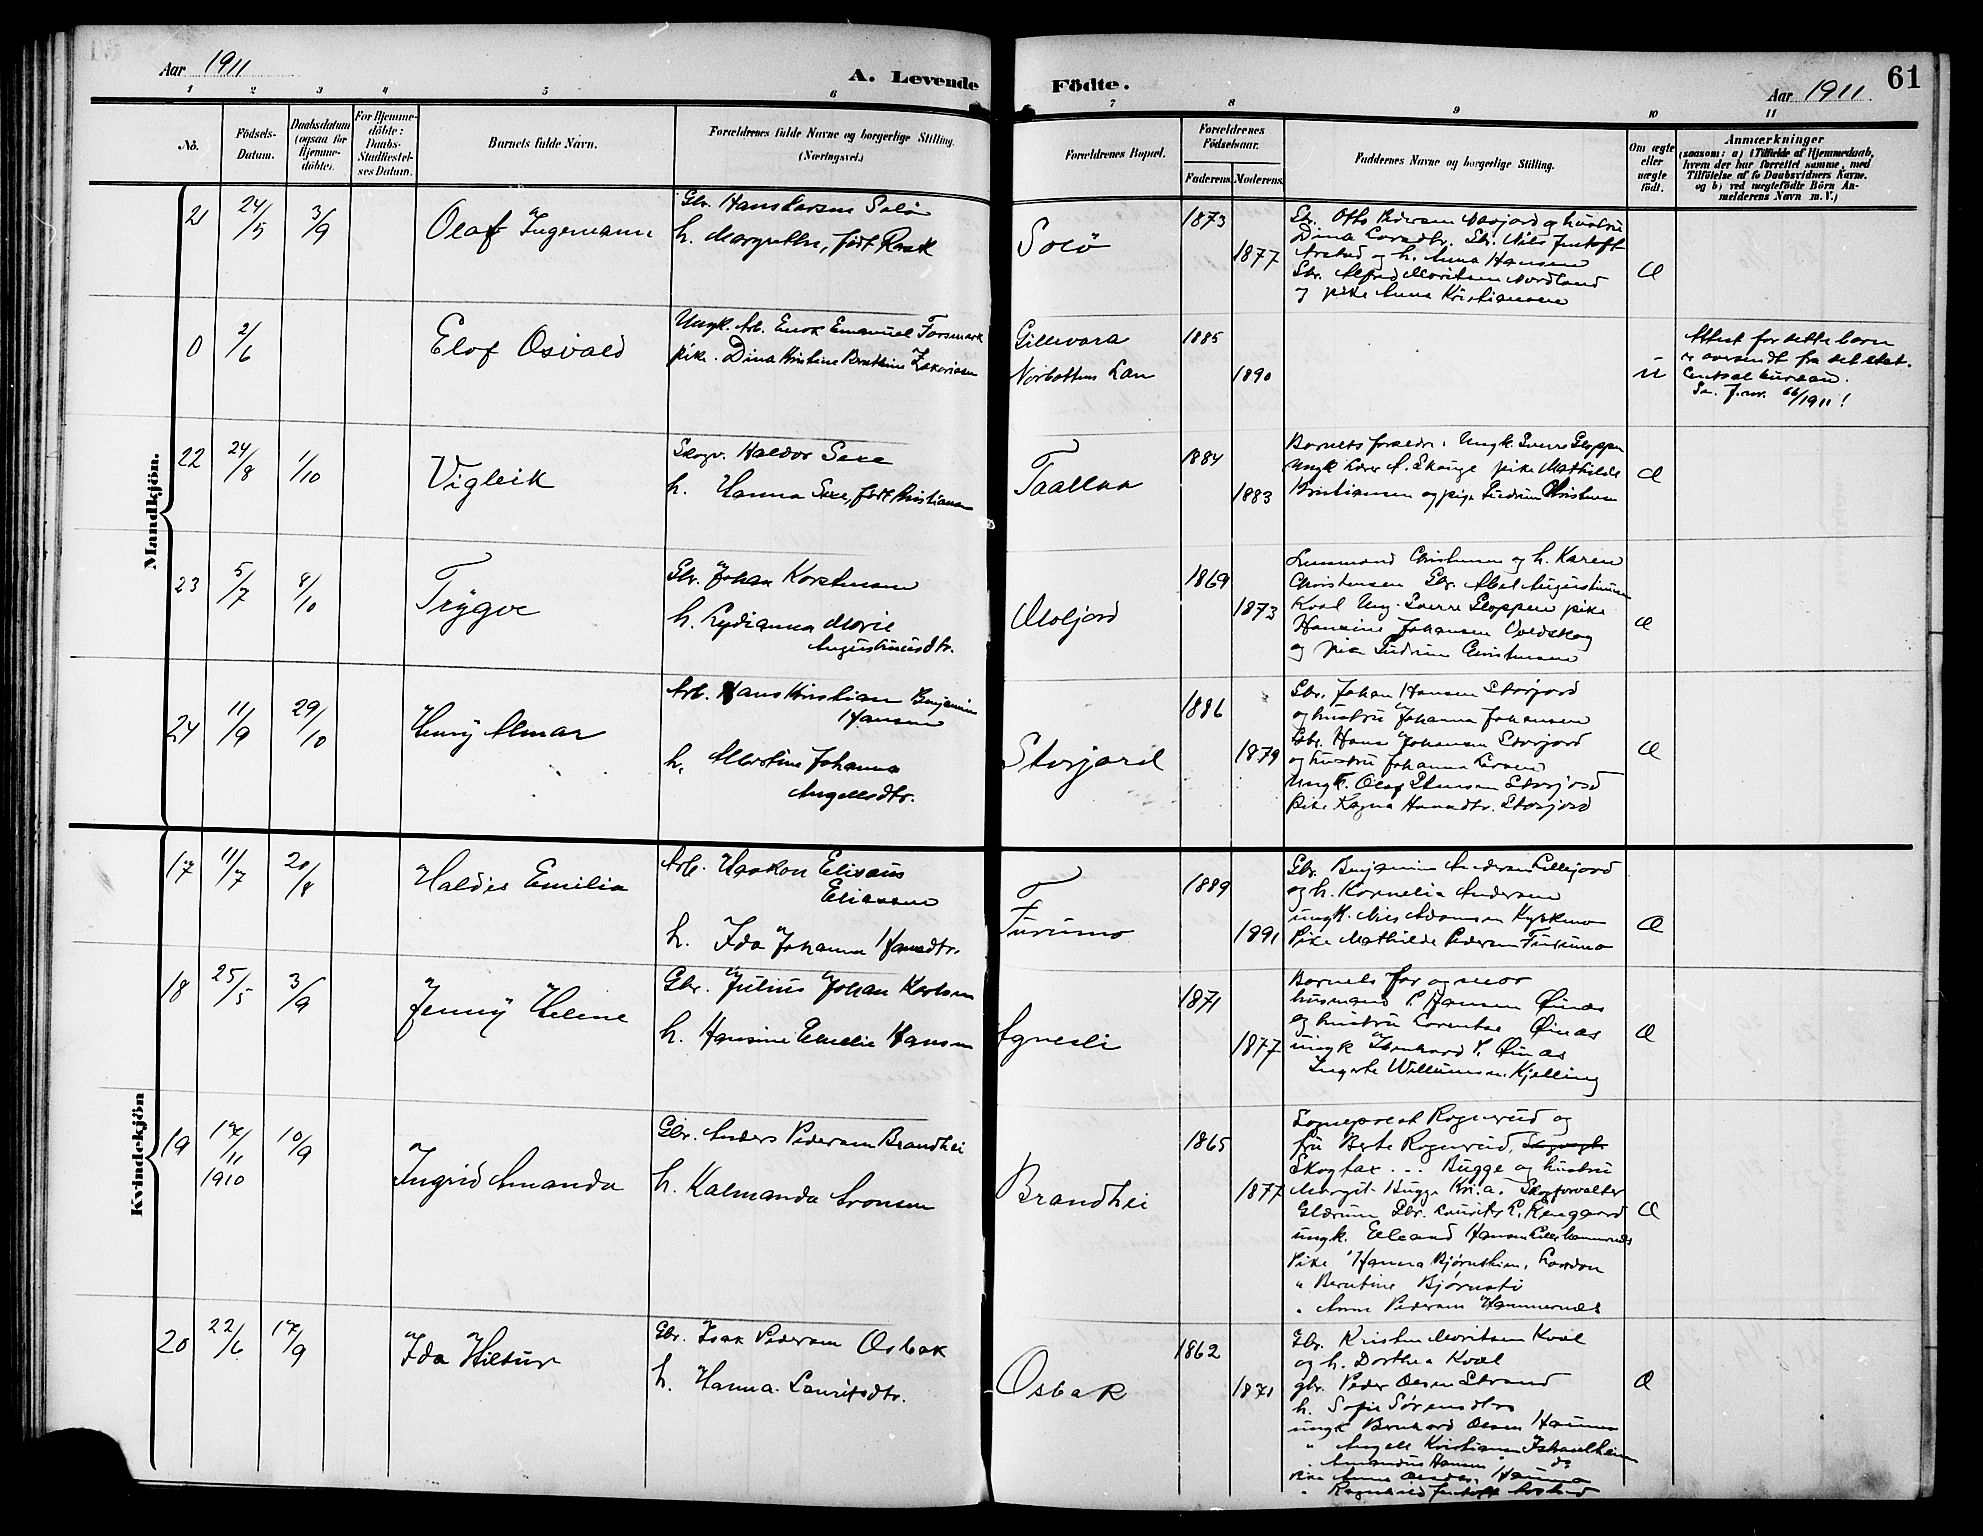 Aar 1911
A. Levende
Födte.
Aar 1911
61
1 2 3 4 5 6 7 8 9 10 11
No.
Födsels-
Datum.
Daabsdatum
(ogsaa for
Hjemme-
döbte).
For Hjemme-
döbte:
Daabs-
Stadfæstel-
ses Datum.
Barnets fulde Navn.
Forældrenes fulde Navne og borgerlige Stilling.
(Næringsvei.)
Forældrenes Bopæl.
Forældrenes
Födselsaar.
Faderens. Moderens.
Faddernes Navne og borgerlige Stilling.
Om ægte
eller
uægte
født.
Anmærkninger
(saasom: a) i Tilfælde af Hjemmedaab,
hvem der har forrettet samme, med
Tilföielse af to Daabsvidners Navne.
og b) ved uægtefödte Börn An-
melderens Navn m. V.)
Mandkjön.
21 24/5 3/9 Olaf Ingemann
Gbr. Hans Larsen Solö
h. Margrethe, født Rask
Solö
1873
1877
Gbr. Otto Pedersen og hustru
Dina Gbr. Nils Jentoft
Arstad og h. Anna Hansen
Gbr. Alfred Moritsen Nordland
og pike Anna Kristiansen
Æ
0 2/6 Elof Osvald
Ungk. Arb. Enok Emanuel Forsmark
pike. Dina Kristine Zakariasen
Gillivara
Norbottens Län
1885
1890
U
Attest for dette barn
er oversendt fra det stat.
Central bureau.
Se. J.nr. 66/1911!
22 24/8 1/10 Vigleik
Skogv. Haldor Sexe
h. Hanna Sexe, født Kristiansen
1884
1883
Barnets forældre, Ungk. Sverre Gloppen
Ungk. pike Mathilde
Kristiansen og pige Gudrun Christensen
Æ
23 5/7 8/10 Trygve
Gbr. Johan
h. Lydianna Marie
Augustinusdtr.
Moljord
1869
1873
Christensen og h. Karen
Christensen Gbr. Abel Augustinusen
Kvæl Ung. Sverre Gloppen pike
Hansine Johansen
og pike Gudrun Christensen
Æ
24 11/9 29/10 Henry Almar
Arb. Hans Kristian Benjamin
Hansen
h. Albertine Johanna
Angellsdtr.
Storjord
1886
1879
Gbr. Johan Hansen Storjord
og hustru Johanna Johansen
Gbr. Hans Johansen Storjord
og hustru Johanna Larsen
Ungk. Olaf Storjord
Pike Ragna Hansdtr. Storjord
Æ
Kvindekjön
17 11/7 20/8 Haldis Emilia
Arb. Haakon Elisæus
Eliassen
h. Ida Johanna Hansdtr.
Furumo
1889
1891
Gbr. Benjamin Andersen Lillejord
og h. Kornelia Andersen
ungk. Nils Adamsen
Pike Mathilde Pedersen Furumo
Æ
18 25/5 3/9 Jenny Helene
Gbr. Julius Johan Karlsen
h. Hansine Emelie Hansen
Agnesli
1871
1877
Barnets far og mor
husmand P. Hansen Øinæs
og hustru Lorentse Øinæs
ungk P. Øinæs
Ingerte Willumsen, Kjelling
Æ
19 17/11 1910 10/9 Ingrid Amanda
Gbr. Anders Pedersen Brandhei
h. Kalmanda Aronsen
Brandhei
1865
1877
Sogneprest Rognerud og
fru Berte Rognerud,
Skogtax. . . Bugge og hustru
Margit Bugge Kr.a. Skogforvalter
Glærum Gbr. Laurits P. Rengaard
ungk. Eleand Hansen
Pike Hanna Bjørnsheim,
" Berntine Bjørnsti
" Anne Pedersen Hammernæs
Æ
20 22/6 17/9 Ida Hildur
Gbr. Isak Pedersen Osbak
h. Hanna Lauritsdtr.
Osbak
1862
1871
Gbr. Kristen Moritsen Kvæl
og h. Dorthea Kvæl
gbr. Peder Olsen Strand
h. Sofie Sørensdtr
ungk Bernhard Olsen
" Angell Kristiansen
" Amandus Hansen do
pike Anna
" Jentoft Arstad
Æ